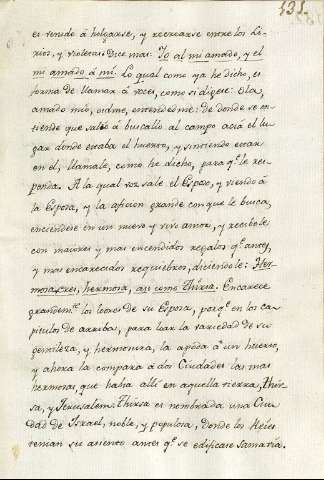 131.
es venido á holgarse, y recrearse entre los Li-
rios, y violetas. Dice mas: Yo al mi amado, y el
mi amado á mi. Lo qual como ya he dicho, es
forma de llamar á voces, como si digese: Ola,
amado mio, oidme, entendedme: de donde se en-
tiende que salió á buscallo al campo acia el lu-
gar donde estaba el huerto, y sintiendo estar
en el, llamale, como he dicho, para q.e le res-
ponda. A la qual voz sale el Esposo, y viendo á
la Esposa, y la aficion grande con que le busca,
enciendese en un nuevo y vivo amor, y recibele
con maiores y mas encendidos regalos q.e antes,
y mas encarecidos requiebros, diciendole: Her-
mosa eres, hermosa, asi como Thirsa. Encarece
grandem.te los loores de su Esposa, porq.e en los ca-
pitulos de arriba, para loar la variedad de su
gentileza, y hermosura, la apoda á un huerto,
y ahora la compara á dos Ciudades las mas
hermosas, que habia alli en aquella tierra, Thir-
sa, y Jerusalem. Thirsa es nombrada una Ciu-
dad de Israel, noble, y populosa, donde los Reies
tenian su asiento antes q.e se edificase Samaria.